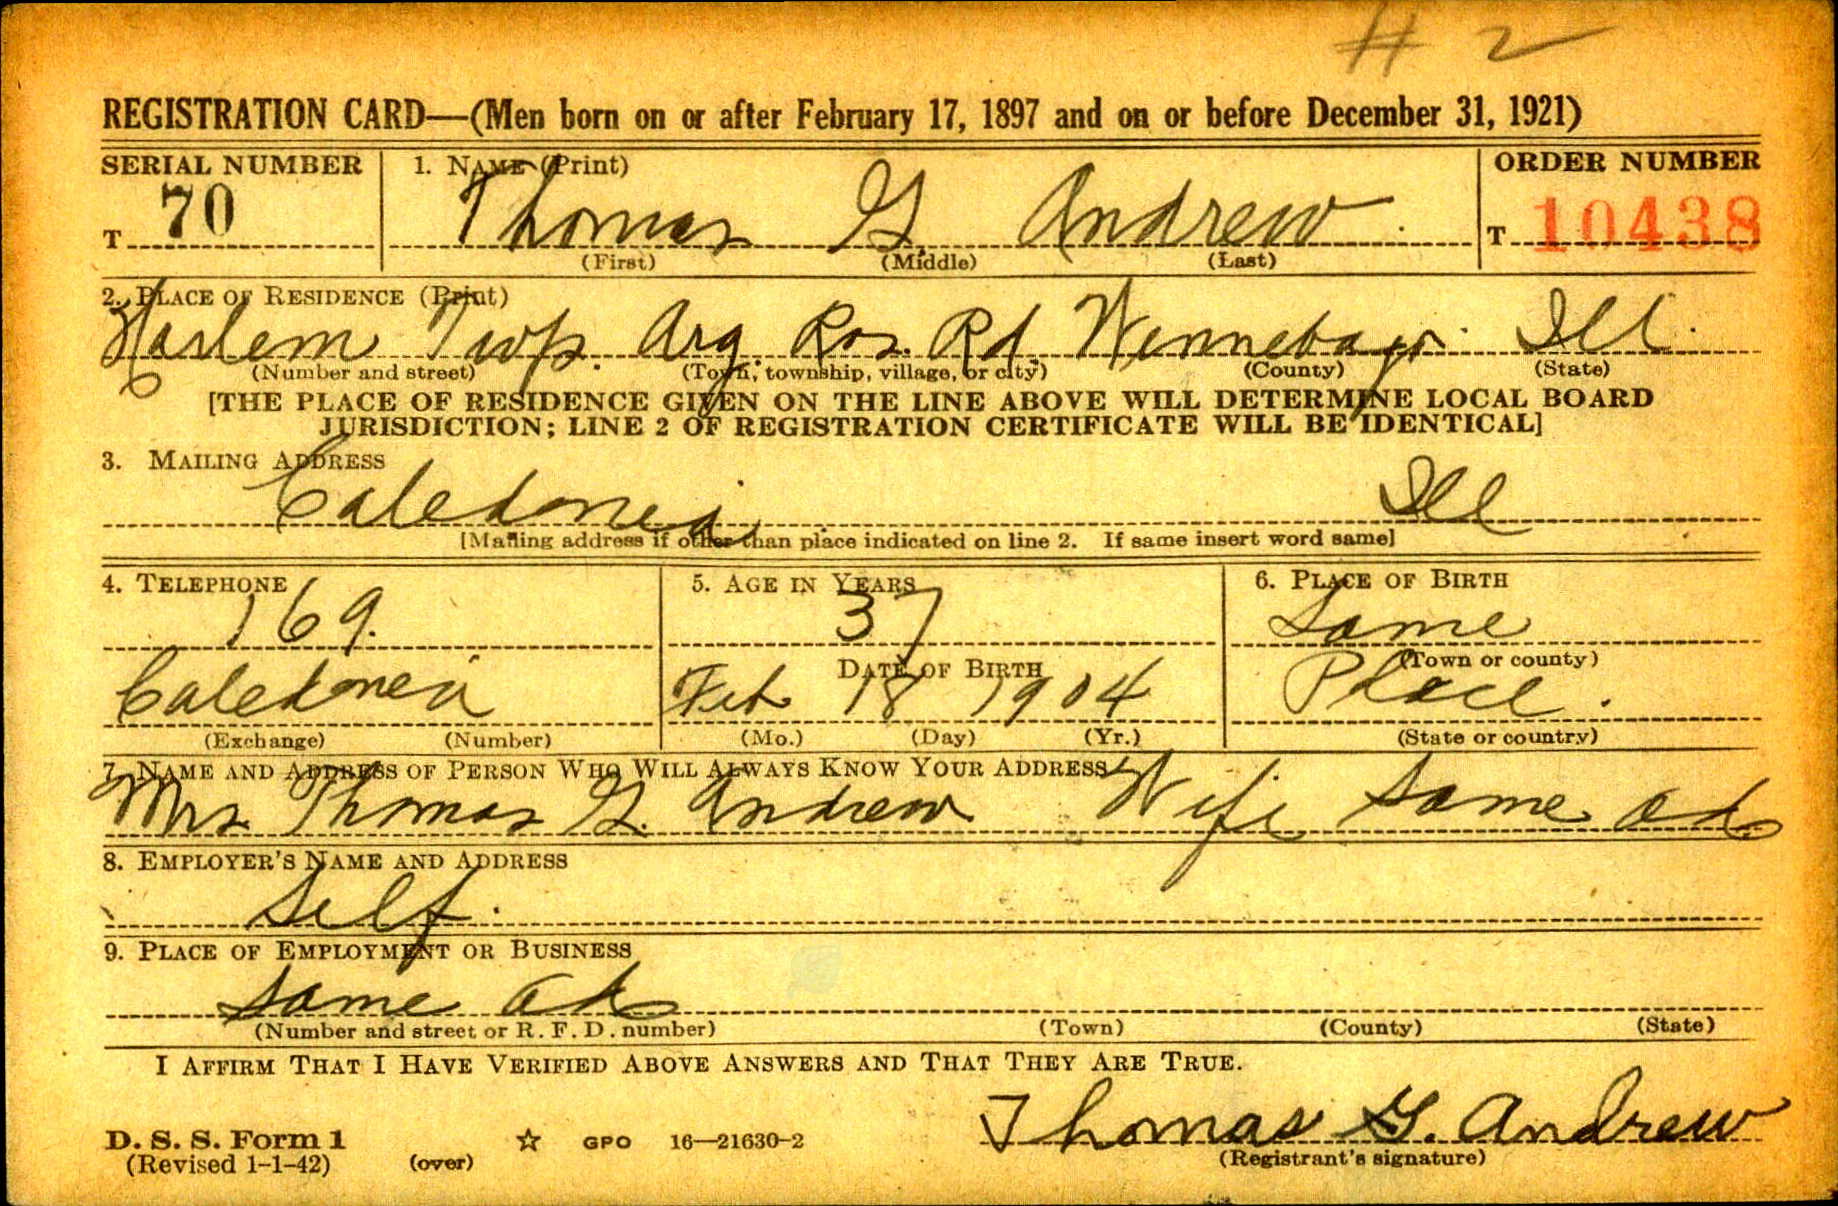 # 2
REGISTRATION CARD—(Men born on or after February 17, 1897 and on or before December 31, 1921)
SERIAL NUMBER 1. NAME (Print) ORDER NUMBER
T 70 Thomas G. Andrew T 10438
(First) (Middle) (Last)
2. PLACE OF RESIDENCE (Print)
Harlem Twp. Arg. Ros. Rd. Winnebago Ill.
(Number and street) (Town, township, village, or city) (County) (State)
[THE PLACE OF RESIDENCE GIVEN ON THE LINE ABOVE WILL DETERMINE LOCAL BOARD
JURISDICTION; LINE 2 OF REGISTRATION CERTIFICATE WILL BE IDENTICAL]
3. MAILING ADDRESS
Caledonia Ill
[Mailing address if other than place indicated on line 2. If same insert word same]
4. TELEPHONE 5. AGE IN YEARS 6. PLACE OF BIRTH
169. 37 Same
DATE OF BIRTH (Town or county)
Caledonia Feb 18 1904 Place.
(Exchange) (Number) (Mo.) (Day) (Yr.) (State or country)
7. NAME AND ADDRESS OF PERSON WHO WILL ALWAYS KNOW YOUR ADDRESS
Mrs Thomas G. Andrew Wife Same ad
8. EMPLOYER'S NAME AND ADDRESS
Self.
9. PLACE OF EMPLOYMENT OR BUSINESS
Same ad
(Number and street or R. F. D. number) (Town) (County) (State)
I AFFIRM THAT I HAVE VERIFIED ABOVE ANSWERS AND THAT THEY ARE TRUE.
Thomas G. Andrew
D. S. S. Form 1 ☆ GPO 16—21630-2
(Revised 1-1-42) (over) (Registrant's signature)